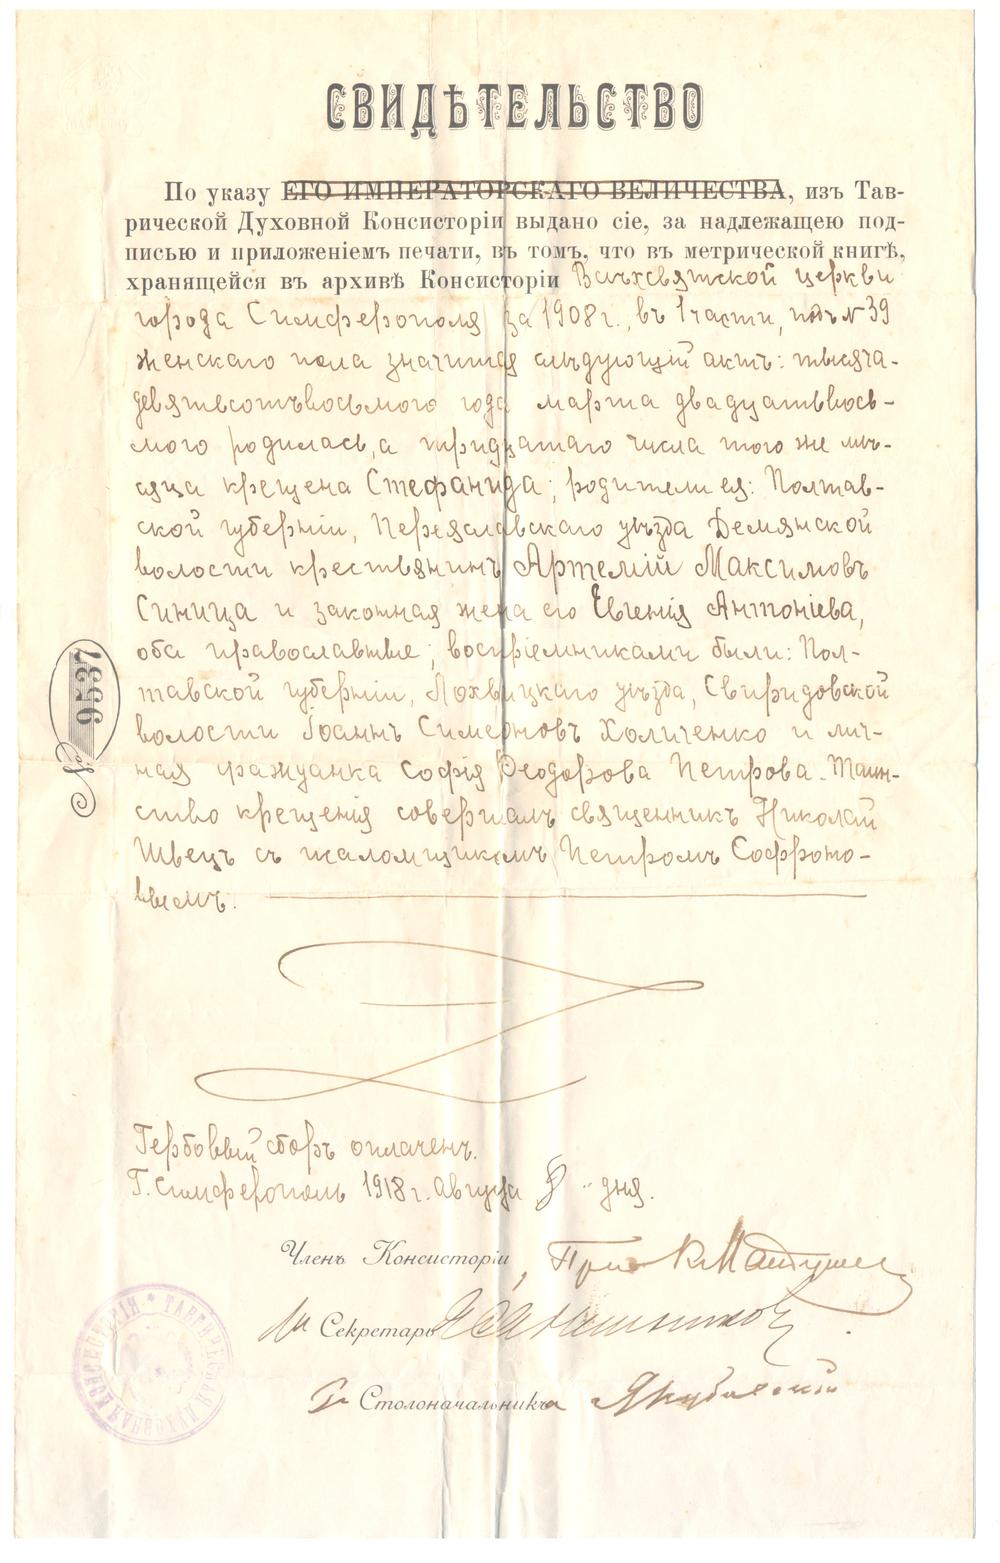 СВИДѢТЕЛЬСТВО
По указу ЕГО ИМПЕРАТОРСКАГО ВЕЛИЧЕСТВА, изъ Тав-
рической Духовной Консисторіи выдано сіе, за надлежащею под-
писью и приложеніемъ печати, въ томъ, что въ метрической книгѣ,
хранящейся въ архивѣ Консисторіи Всѣхсвятской церкви
города Симферополя за 1908 г., въ 1 части, подъ № 39
женскаго пола значится слѣдующій актъ: тысяча-
девятьсотъвосьмого года марта двадцатьвось-
мого родилась, а тридцатаго числа того же мѣ-
сяца крещена Стефанида; родители ея: Полтав-
ской губерніи, Переяславскаго уѣзда Демянской
волости крестьянинъ Артемій Максимовъ
Синица и законная жена его Евгенія Антоніева,
оба православные; воспріемниками были: Пол-
тавской губерніи, Лохвицкаго уѣзда, Свиридовской
волости Іоаннъ Симеоновъ Холиченко и мѣст-
ная гражданка Софія Ѳеодорова Петрова. Таин-
ство крещенія совершалъ священникъ Николай
Швецъ съ псаломщикомъ Петромъ Софроно-
вымъ.
№ 9537
Гербовый сборъ оплаченъ.
Г. Симферополь 1918 г. Августа 8 дня.
Членъ Консисторіи,
Секретарь
Столоначальника Якубовский
ТАВРИЧЕСКАЯ ДУХОВНАЯ КОНСИСТОРІЯ